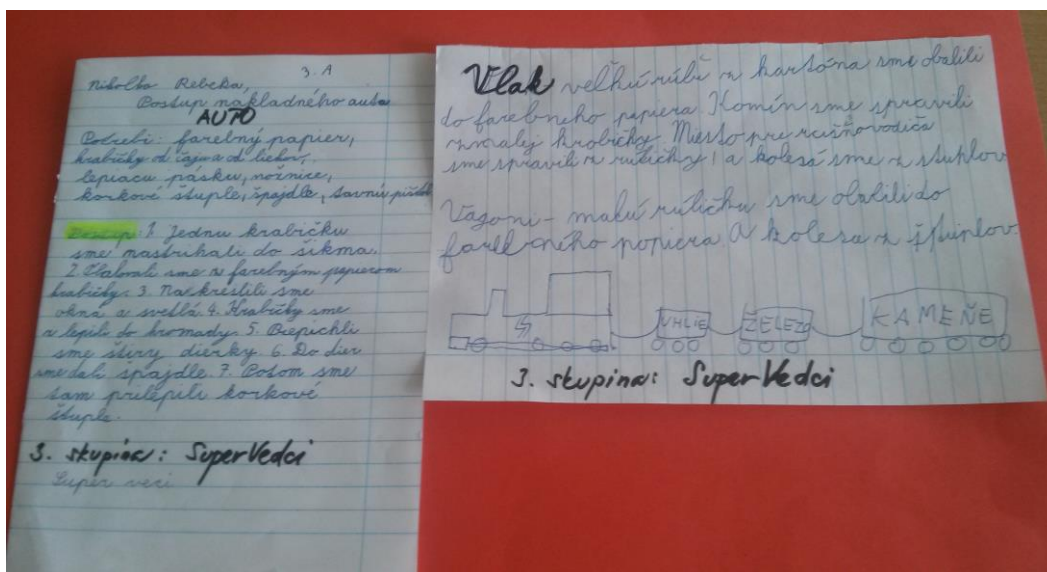 3. A
Nikolka Rebeka,
Postup nakladného auta
AUTO
Potrebi: farebný papier,
krabičky od čaju a od liekov,
lepiacu pásku, nožnice,
korkové štuple, špajdle, tavnú
Postup: 1. Jednu krabičku
sme nastrihali do šikma.
2. Obalovali sme z farebným papierom
krabičky. 3. Nakreslili sme
okná a svetlá. 4. Krabičky sme
z lepili do hromady. 5. Prepichli
sme štiry dierky. 6. Do dier
sme dali špajdle. 7. Potom sme
tam prilepili korkové
štuple.
3. skupina: SuperVedci
Super veci
Vlak veľkú rúli z kartóna sme obalili
do farebneho papiera. Komín sme spravili
z malej krabičky. Miesto pre rušňovodiča
sme spravili z ruličky, a kolesá sme z stuplov
Vagoni - malú ruličku sme obalili do
farebného papiera. A kolesa z štuplov.
UHLIE ŽELEZO KAMEŇE
3. skupina: SuperVedci